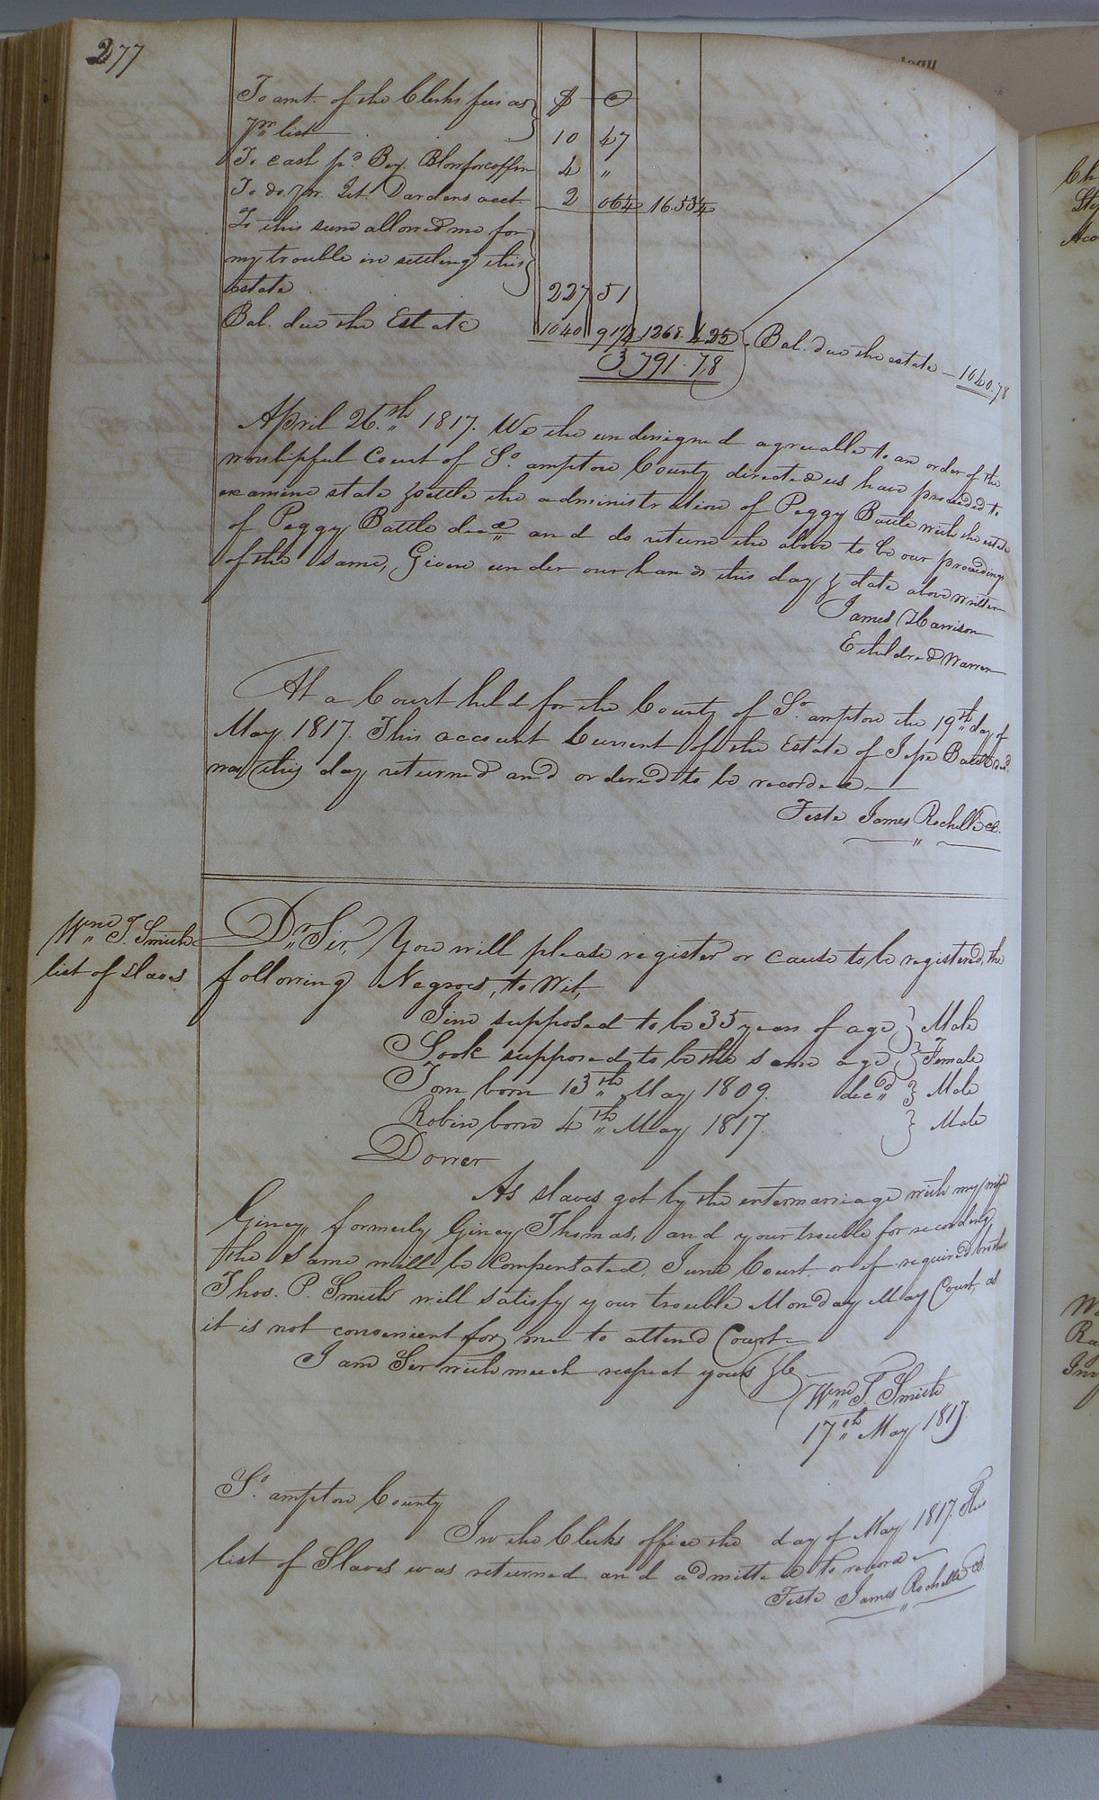 277
To amt. of the Clerks fees as } $ C
pr. list 10 47
To cash pd. Boy Blow for coffin 4 "
To do. pr. Dardens acct. 2 06¼ 16.53¼
To this sum allowed me for
my trouble in settling this
estate 227 51
Bal. due the Estate 1040 91¾ 1268.42
3791.78 } Bal. due the estate — 1040.78
April 26.th 1817. We the undersigned agreeable to an order of the
worshipful Court of So. ampton County directed us have proceeded to
examine state & settle the administration of Peggy Battle with the estate
of Peggy Battle decd. and do return the above to be our proceedings
of the same, Given under our hands this day & date above written
James Harrison
Etheldred Warren
At a Court held for the County of So. ampton the 19th day of
May 1817. This account Current of the Estate of Jesse Battle decd.
was this day returned and ordered to be recorded —
Teste James Rochelle Cl.
Wm. T. Smith
list of Slaves
Dr. Sir, You will please register or cause to be registered, the
following Negroes, to Wit,
Jim supposed to be 35 years of age } Male
Sook supposed to be the same age } Female
Tom born 13th May 1809. decd. } Male
Robin born 4th May 1817. } Male
Dower
As slaves got by the intermarriage with my wife
Giney, formerly Giney Thomas, and your trouble for recording
the same will be Compensated, June Court or if required brother
Thos. P. Smith will satisfy your trouble Monday May Court, as
it is not convenient for me to attend Court —
I am Sir with much respect yours &c
Wm. T. Smith
17th May 1817.
So. ampton County
In the Clerks office the day of May 1817. This
list of Slaves was returned and admitted to record —
Teste James Rochelle Cl.